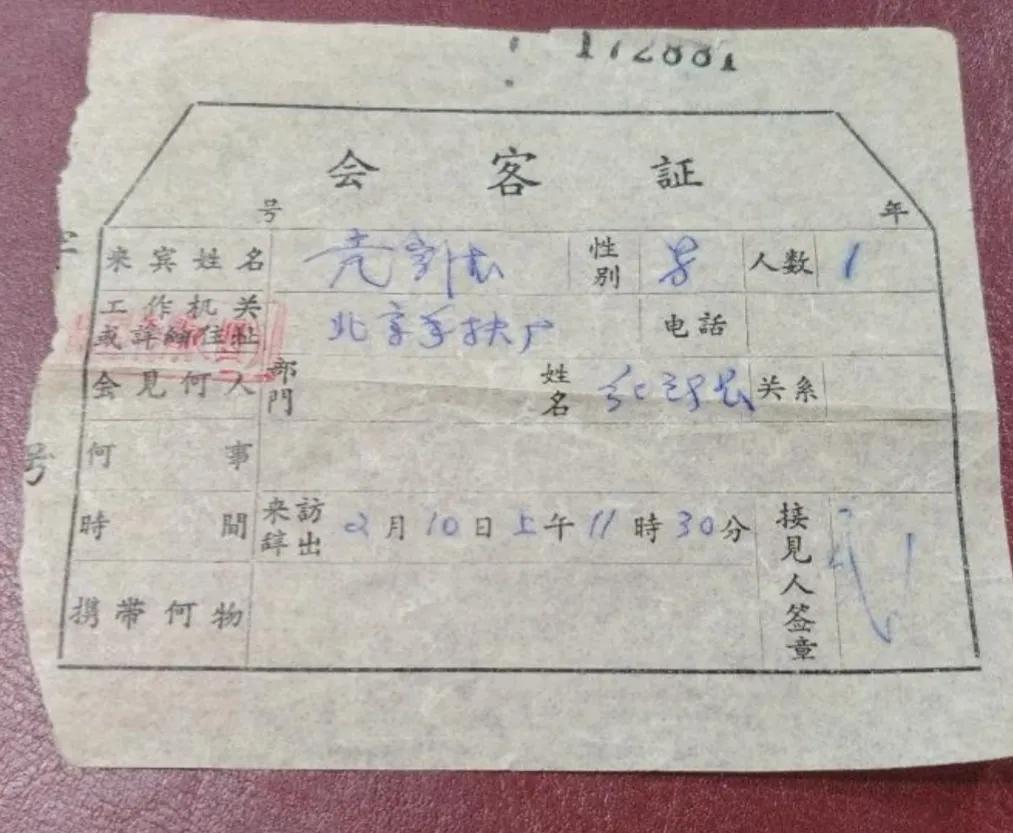 172881
会客証
号 年
来宾姓名 性别 男 人数 1
工作机关或詳細住址 北京手扶厂 电話
会見何人 部門 姓名 关系
何事
時間 来訪辞出 2月10日上午11時30分 接見人签章
携带何物
字
号